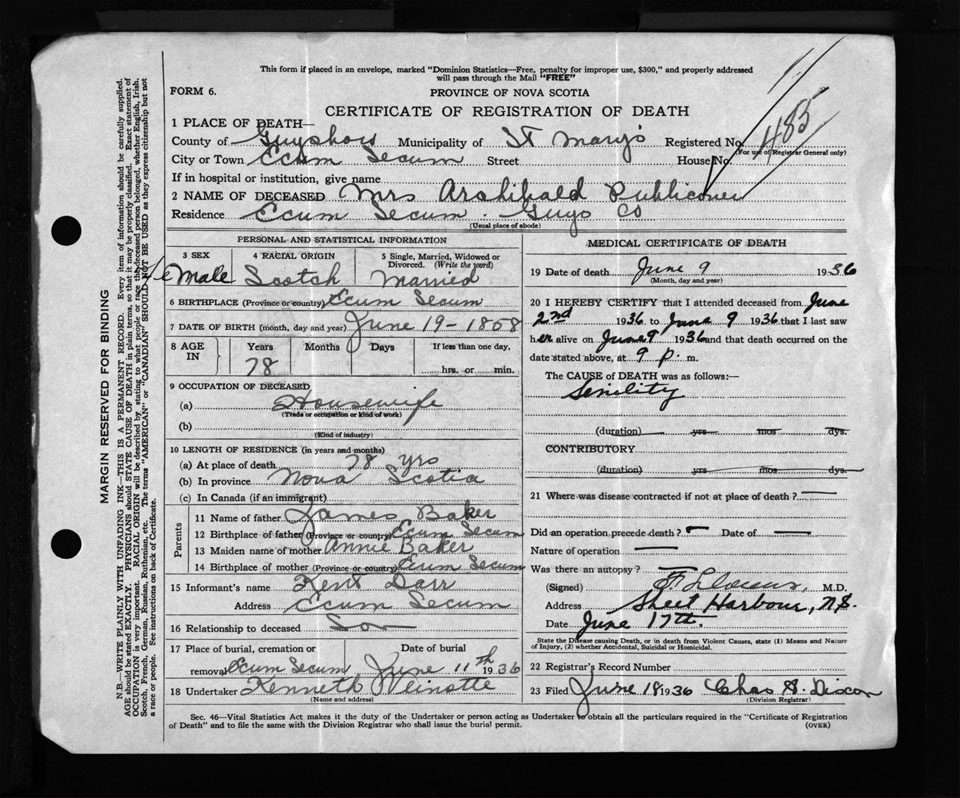 This form if placed in an envelope, marked "Dominion Statistics—Free, penalty for improper use, $300," and properly addressed
will pass through the Mail "FREE"
FORM 6.
PROVINCE OF NOVA SCOTIA
CERTIFICATE OF REGISTRATION OF DEATH
485
1 PLACE OF DEATH—
County of Guysboro Municipality of St Mary's Registered No.
(For use of Registrar General only)
City or Town Ecum Secum Street House No.
If in hospital or institution, give name
2 NAME OF DECEASED Mrs Archibald Publicover
Residence Ecum Secum. Guys Co
(Usual place of abode)
PERSONAL AND STATISTICAL INFORMATION
3 SEX 4 RACIAL ORIGIN 5 Single, Married, Widowed or Divorced. (Write the word)
Female Scotch Married
6 BIRTHPLACE (Province or country) Ecum Secum
7 DATE OF BIRTH (month, day and year) June 19-1858
8 AGE IN Years Months Days If less than one day,
78 hrs. or min.
9 OCCUPATION OF DECEASED
(a) Housewife
(Trade or occupation or kind of work)
(b)
(Kind of industry)
10 LENGTH OF RESIDENCE (in years and months)
(a) At place of death 78 yrs
(b) In province Nova Scotia
(c) In Canada (if an immigrant)
Parents
11 Name of father James Baker
12 Birthplace of father (Province or country) Ecum Secum
13 Maiden name of mother Annie Baker
14 Birthplace of mother (Province or country) Ecum Secum
15 Informant's name Kent
Address Ecum Secum
16 Relationship to deceased Son
17 Place of burial, cremation or Date of burial
removal Ecum Secum June 11th 1936
18 Undertaker Kenneth
(Name and address)
MEDICAL CERTIFICATE OF DEATH
19 Date of death June 9 1936
(Month, day and year)
20 I HEREBY CERTIFY that I attended deceased from June
2nd 1936 to June 9 1936 that I last saw
her alive on June 9 1936 and that death occurred on the
date stated above, at 9 p. m.
The CAUSE of DEATH was as follows:—
Senility
(duration) yrs mos dys.
CONTRIBUTORY
(duration) yrs mos dys
21 Where was disease contracted if not at place of death?
Did an operation precede death? Date of
Nature of operation
Was there an autopsy?
(Signed) M.D.
Address Sheet Harbour, N.S.
Date June 17th.
State the Disease causing Death, or in death from Violent Causes, state (1) Means and Nature
of Injury, (2) whether Accidental, Suicidal or Homicidal.
22 Registrar's Record Number
23 Filed June 18 1936 Chas A. Dixon
(Division Registrar)
Sec. 46—Vital Statistics Act makes it the duty of the Undertaker or person acting as Undertaker to obtain all the particulars required in the "Certificate of Registration
of Death" and to file the same with the Division Registrar who shall issue the burial permit.
(OVER)
MARGIN RESERVED FOR BINDING
N.B.—WRITE PLAINLY WITH UNFADING INK—THIS IS A PERMANENT RECORD. Every item of information should be carefully supplied.
AGE should be stated EXACTLY. PHYSICIANS should STATE CAUSE OF DEATH in plain terms, so that it may be properly classified. Exact statement of
OCCUPATION is very important. RACIAL ORIGIN will be described by stating to what people or race the deceased person belonged, whether English, Irish,
Scotch, French, German, Russian, Ruthenian, etc. The terms "AMERICAN" or "CANADIAN" SHOULD NOT BE USED as they express citizenship but not
a race or people. See instructions on back of Certificate.